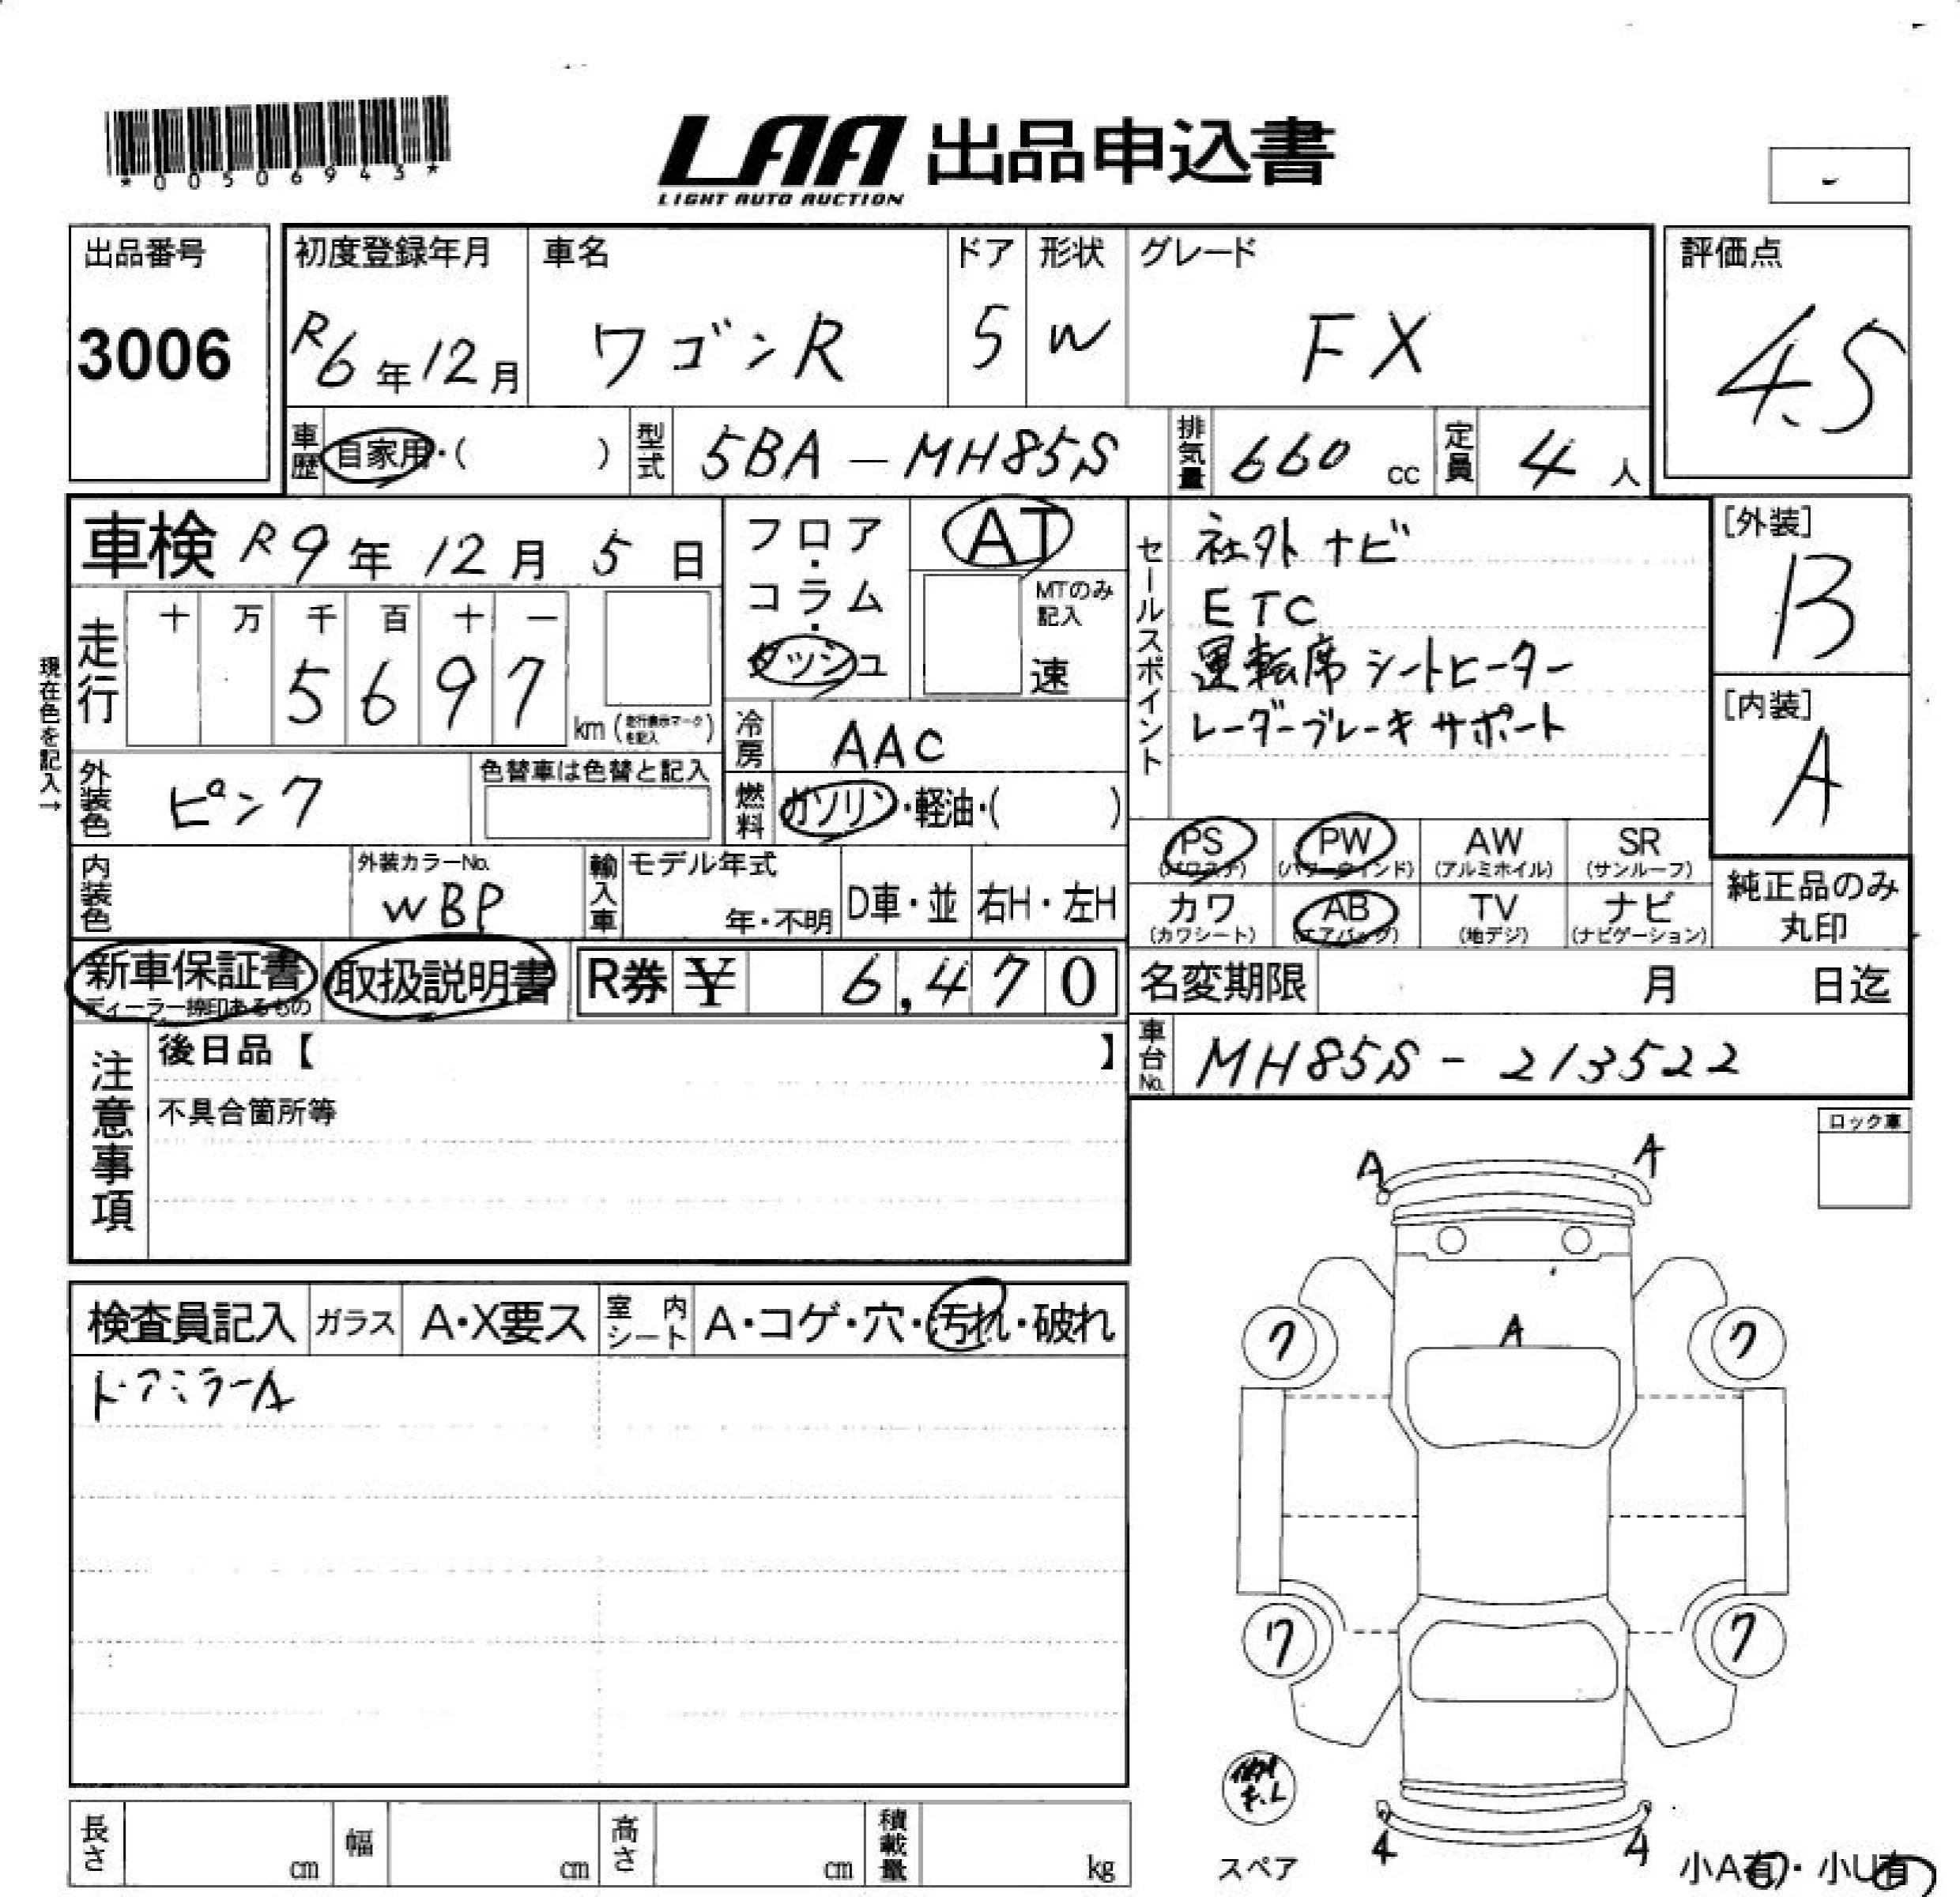 *00506943*
LAA 出品申込書
LIGHT AUTO AUCTION
出品番号
3006
初度登録年月
R6年12月
車名
ワゴンR
ドア
5
形状
W
グレード
FX
評価点
4.5
車歴
自家用・( )
型式
5BA-MH85S
排気量
660 cc
定員
4 人
車検 R9年 12月 5日
フロア・コラム・ダッシュ
AT
MTのみ記入
速
セールスポイント
社外ナビ
ETC
運転席シートヒーター
レーダーブレーキサポート
[外装]
B
[内装]
A
現在色を記入→
走行
十 万 千 百 十 一
5 6 9 7
km (走行表示マークを記入)
冷房
AAC
外装色
ピンク
色替車は色替と記入
燃料
ガソリン・軽油・( )
PS (パワステ)
PW (パワーウィンド)
AW (アルミホイル)
SR (サンルーフ)
カワ (カワシート)
AB (エアバッグ)
TV (地デジ)
ナビ (ナビゲーション)
純正品のみ丸印
内装色
外装カラーNo.
WBP
輸入車
モデル年式
年・不明
D車・並
右H・左H
新車保証書
ディーラー捺印あるもの
取扱説明書
R券 ¥ 6,470
名変期限 月 日迄
注意事項
後日品【 】
不具合箇所等
車台No.
MH85S-213522
ロック車
検査員記入
ガラス
A・X要ス
室内シート
A・コゲ・穴・汚れ・破れ
ドアミラーA
A
A
A
7
7
7
7
スペア
4
4
小A有・小U有
長さ cm
幅 cm
高さ cm
積載量 kg